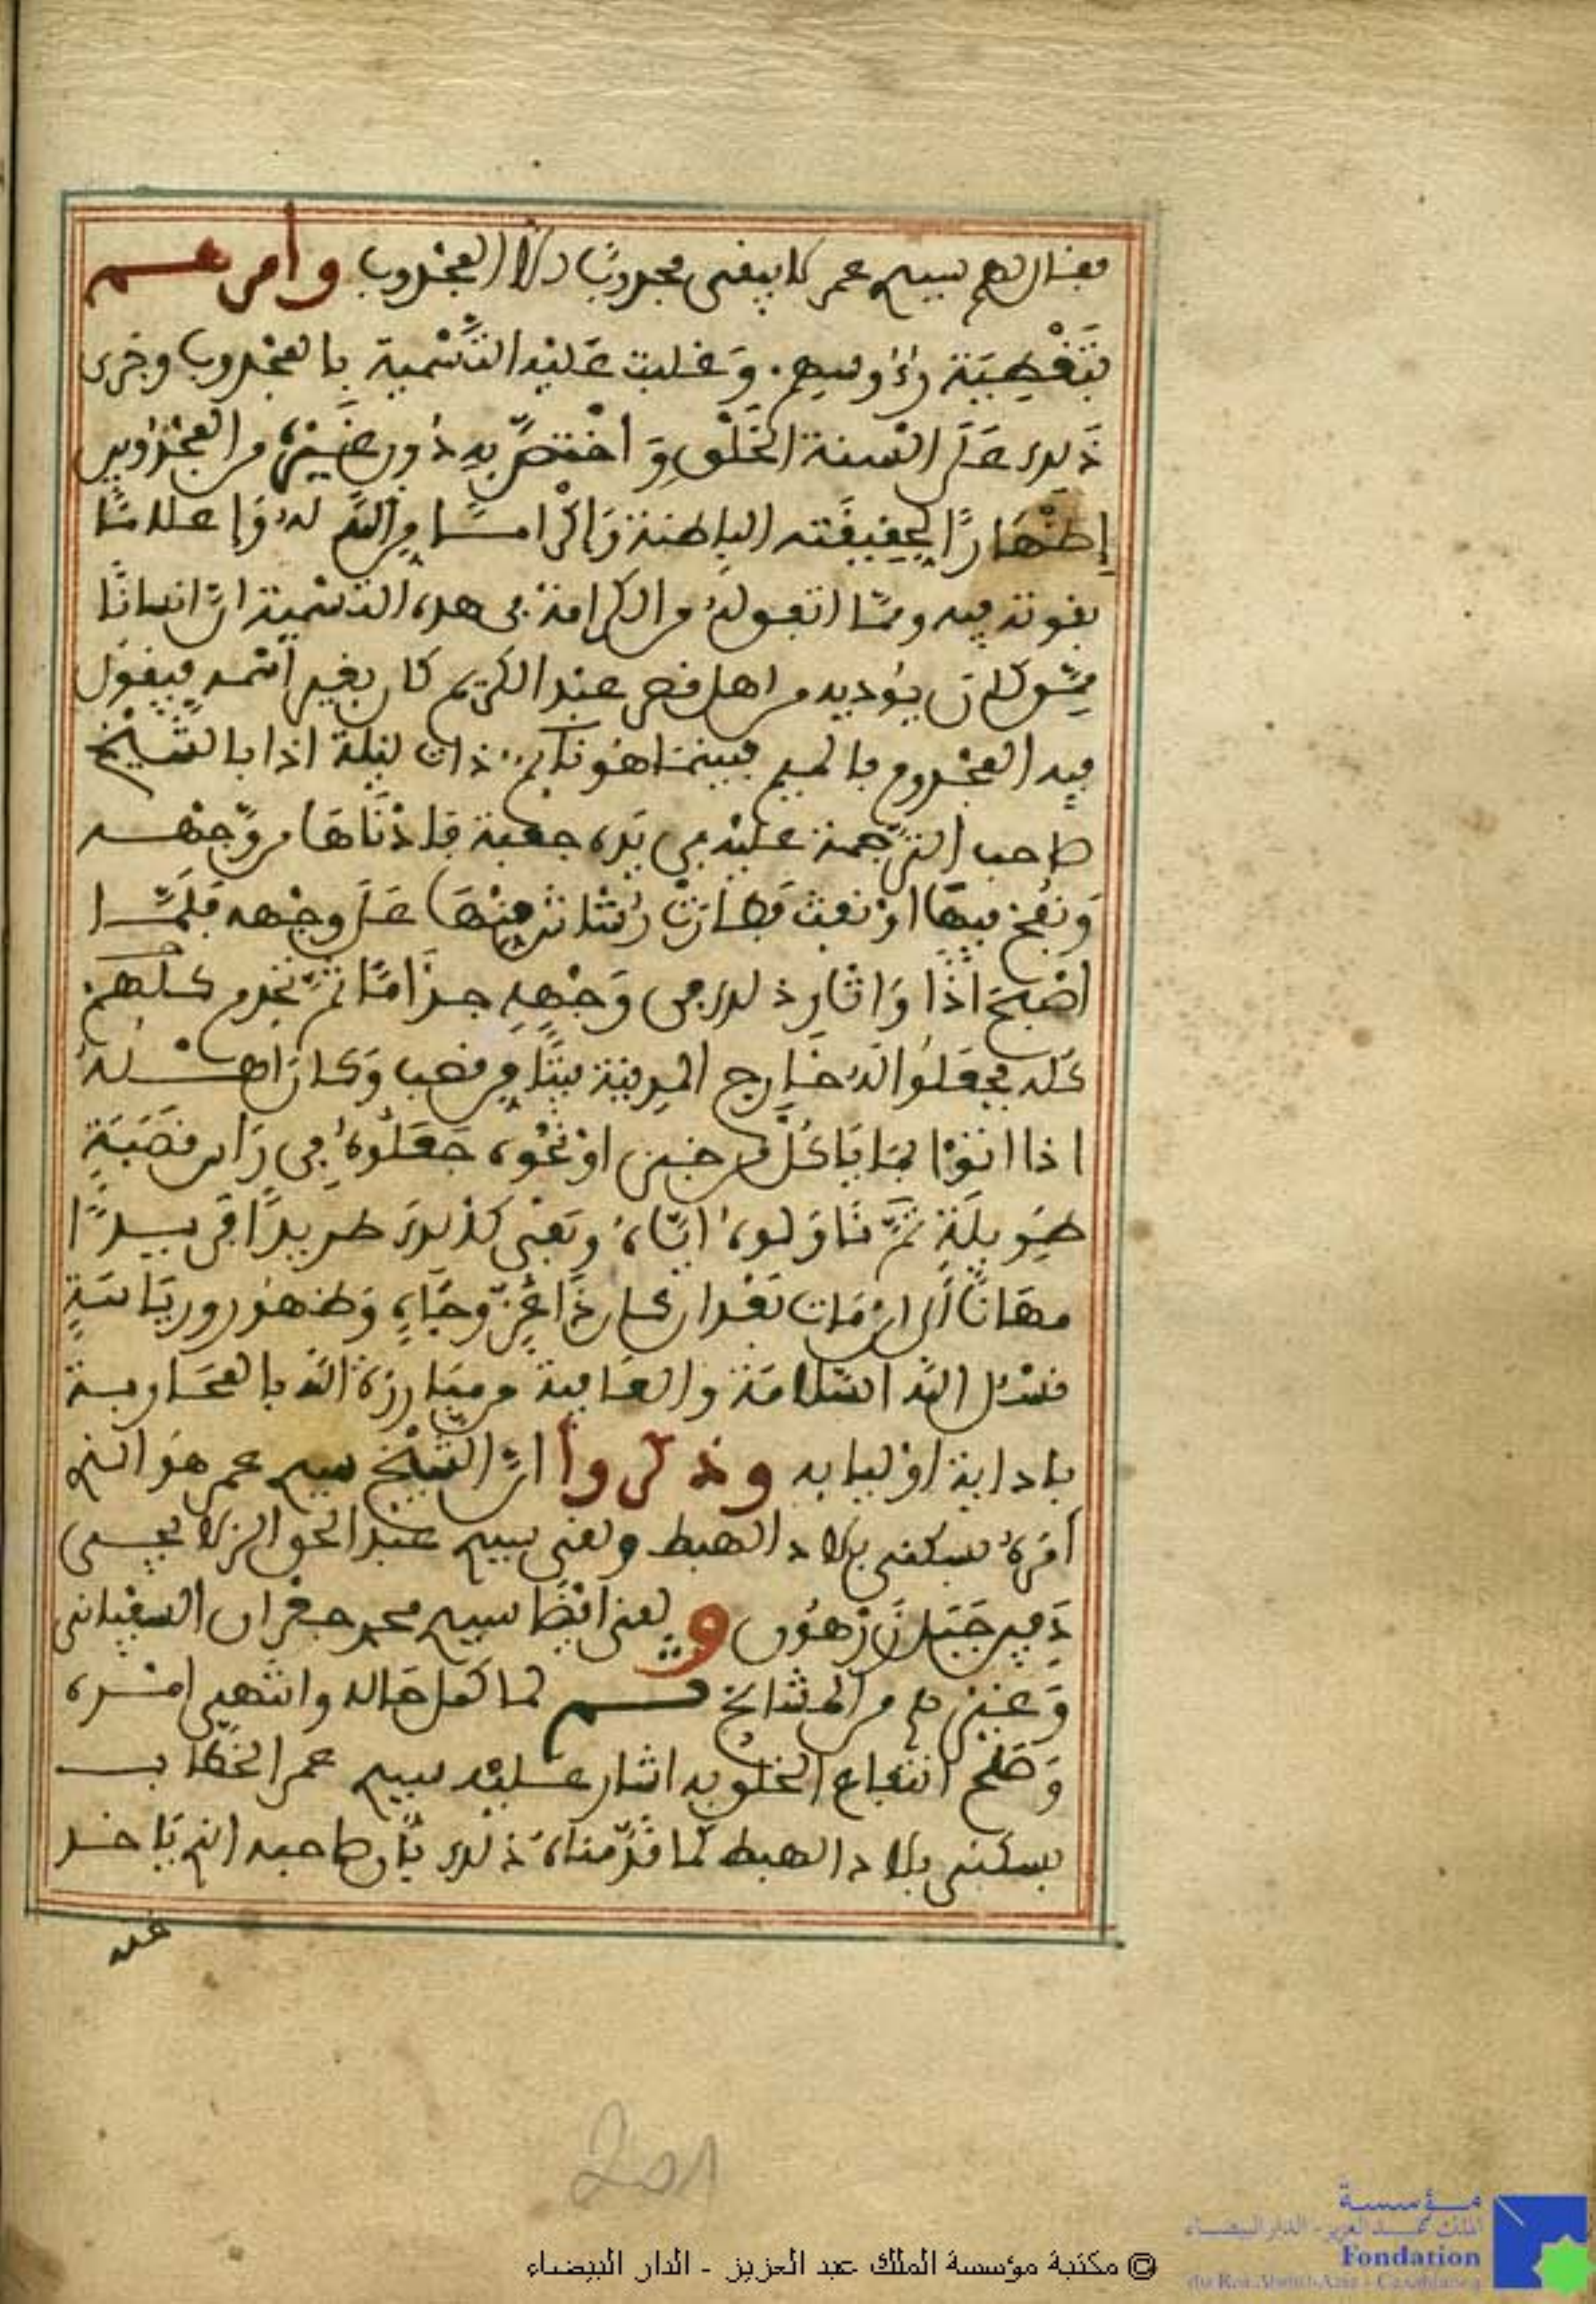 فقال لهم سيدي عمر لا يبقى مجدوبا الا المجذوب وأمرهم
بتغطية رءوسهم. وغلبت عليه التسمية بالمجذوب وجرى
ذلك على ألسنة الخلق واختص به دون غيره من المجذوبين
إظهارا لحقيقته الباطنة وإكراما من الله له وإعلاما
بقوته فيه ومما اتفق له من الكرامة في هذه التسمية ان انسانا
ممن كان يؤذيه من اهل قصر عبد الكريم كان يغير اسمه فيقول
فيه المجذوم بالميم فبينما هو نائم ذات ليلة اذا بالشيخ
صاحب الترجمة عليه في يده جعبة فادناها من وجهه
ونفخ فيها او نفث فطارت رشاش منها على وجهه فلما
اصبح اذا واثار ذلك في وجهه جذاما ثم تجذم كلهم
كله فجعلوا له خارج المدينة بيتا من قصب وكان اهله
اذا اتوا بما يأكل من خبز او نحوه جعلوه في راس قصبة
طويلة ثم ناولوه اياه وبقي كذلك طريدا فريدا
مهانا الى ان مات بعد ان كان ذا عز وجاه وظهور ورياسة
نسئل الله السلامة والعافية من مبارزة الله بالمحاربة
باذاية اوليايه وذكروا ان الشيخ سيدي عمر هو الذي
أمره بسكنى بلاد الهبط ولقي سيدي عبد الحق الزلايجي
دفين جبل زرهون ولقي ايضا سيدي محمد جعران السفياني
وغيرهم من المشايخ ثم لما كمل حاله وانتهى امره
وصلح انتفاع الخلق به اشار عليه سيدي عمر الخطاب
بسكنى بلاد الهبط كما قدمناه ذلك بأن صاحبه الذي يأخذ
عنه
201
© مكتبة مؤسسة الملك عبد العزيز - الدار البيضاء
مؤسسة
الملك عبد العزيز - الدار البيضاء
Fondation
du Roi Abdul-Aziz - Casablanca